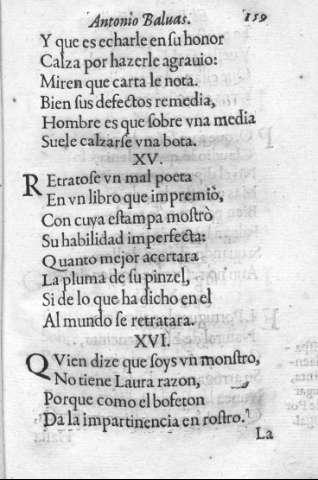 Antonio Baluas. 159
Y que es echarle en su honor
Calza por hazerle agrauio:
Miren que carta le nota.
Bien sus defectos remedia,
Hombre es que sobre vna media
Suele calzarse vna bota.
XV.
REtratose vn mal poeta
En vn libro que impremiò,
Con cuya estampa mostrò
Su habilidad imperfecta:
Quanto mejor acertara
La pluma de su pinzel,
Si de lo que ha dicho en el
Al mundo se retratara.
XVI.
QVien dize que soys vn monstro,
No tiene Laura razon,
Porque como el bofeton
Da la impartinencia en rostro.
La